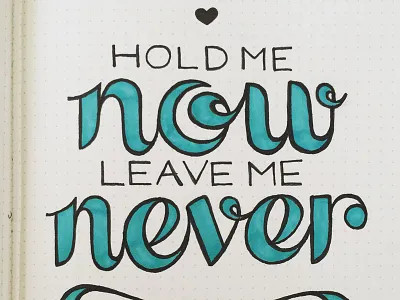 HOLD ME
now
LEAVE ME
never